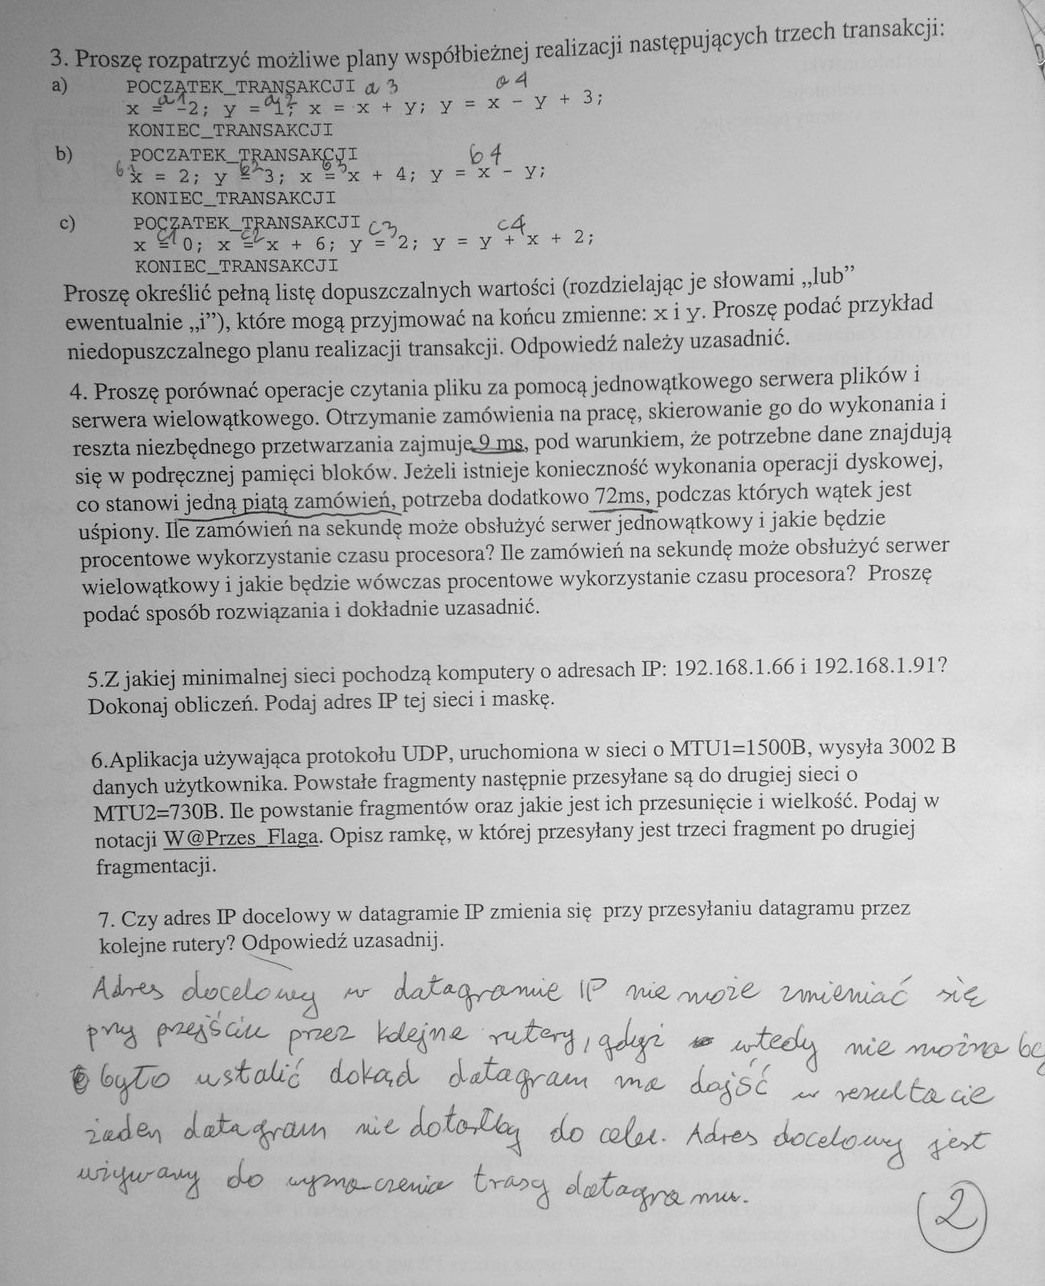 3. Proszę rozpatrzyć możliwe plany współbieżnej realizacji następujących trzech transakcji:
a) POCZĄTEK_TRANSAKCJI a3 a4
x = -2; y = 1; x = x + y; y = x - y + 3;
a1 a2
KONIEC_TRANSAKCJI
b) POCZATEK_TRANSAKCJI b4
b1 x = 2; y = 3; x = x + 4; y = x - y;
b2 b3
KONIEC_TRANSAKCJI
c) POCZĄTEK_TRANSAKCJI c3 c4
x = 0; x = x + 6; y = 2; y = y + x + 2;
c1 c2
KONIEC_TRANSAKCJI
Proszę określić pełną listę dopuszczalnych wartości (rozdzielając je słowami „lub”
ewentualnie „i”), które mogą przyjmować na końcu zmienne: x i y. Proszę podać przykład
niedopuszczalnego planu realizacji transakcji. Odpowiedź należy uzasadnić.
4. Proszę porównać operacje czytania pliku za pomocą jednowątkowego serwera plików i
serwera wielowątkowego. Otrzymanie zamówienia na pracę, skierowanie go do wykonania i
reszta niezbędnego przetwarzania zajmuje 9 ms, pod warunkiem, że potrzebne dane znajdują
się w podręcznej pamięci bloków. Jeżeli istnieje konieczność wykonania operacji dyskowej,
co stanowi jedną piątą zamówień, potrzeba dodatkowo 72ms, podczas których wątek jest
uśpiony. Ile zamówień na sekundę może obsłużyć serwer jednowątkowy i jakie będzie
procentowe wykorzystanie czasu procesora? Ile zamówień na sekundę może obsłużyć serwer
wielowątkowy i jakie będzie wówczas procentowe wykorzystanie czasu procesora? Proszę
podać sposób rozwiązania i dokładnie uzasadnić.
5.Z jakiej minimalnej sieci pochodzą komputery o adresach IP: 192.168.1.66 i 192.168.1.91?
Dokonaj obliczeń. Podaj adres IP tej sieci i maskę.
6.Aplikacja używająca protokołu UDP, uruchomiona w sieci o MTU1=1500B, wysyła 3002 B
danych użytkownika. Powstałe fragmenty następnie przesyłane są do drugiej sieci o
MTU2=730B. Ile powstanie fragmentów oraz jakie jest ich przesunięcie i wielkość. Podaj w
notacji W@Przes_Flaga. Opisz ramkę, w której przesyłany jest trzeci fragment po drugiej
fragmentacji.
7. Czy adres IP docelowy w datagramie IP zmienia się przy przesyłaniu datagramu przez
kolejne rutery? Odpowiedź uzasadnij.
Adres docelowy w datagramie IP nie może zmieniać się
przy przejściu przez kolejne rutery, gdyż wtedy nie można
było ustalić dokąd datagram ma dojść w rezultacie
żaden datagram nie dotarłby do celu. Adres docelowy jest
używany do wyznaczenia trasy datagramu.
2